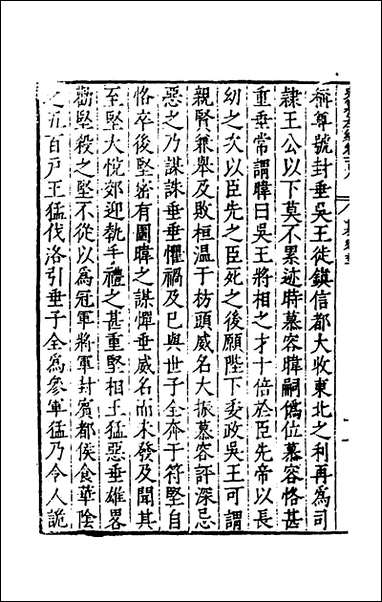 稱尊號封垂吳王徙鎮信都大收東北之利再為司
隸王公以下莫不累迹時慕容暐嗣僞位慕容恪甚
重垂常謂暐曰吳王將相之才十倍於臣先帝以長
幼之次以臣先之臣死之後願陛下委政吳王可謂
親賢兼舉及敗桓温于枋頭威名大振慕容評深忌
惡之乃謀誅垂垂懼禍及已與世子全奔于符堅自
恪卒後堅密有圖暐之謀憚垂威名而未發及聞其
至堅大悅郊迎執手禮之甚重堅相王猛惡垂雄畧
勸堅殺之堅不從以為冠軍將軍封賓都侯食華陰
之五百戸王猛伐洛引垂子全為參軍猛乃令人詭